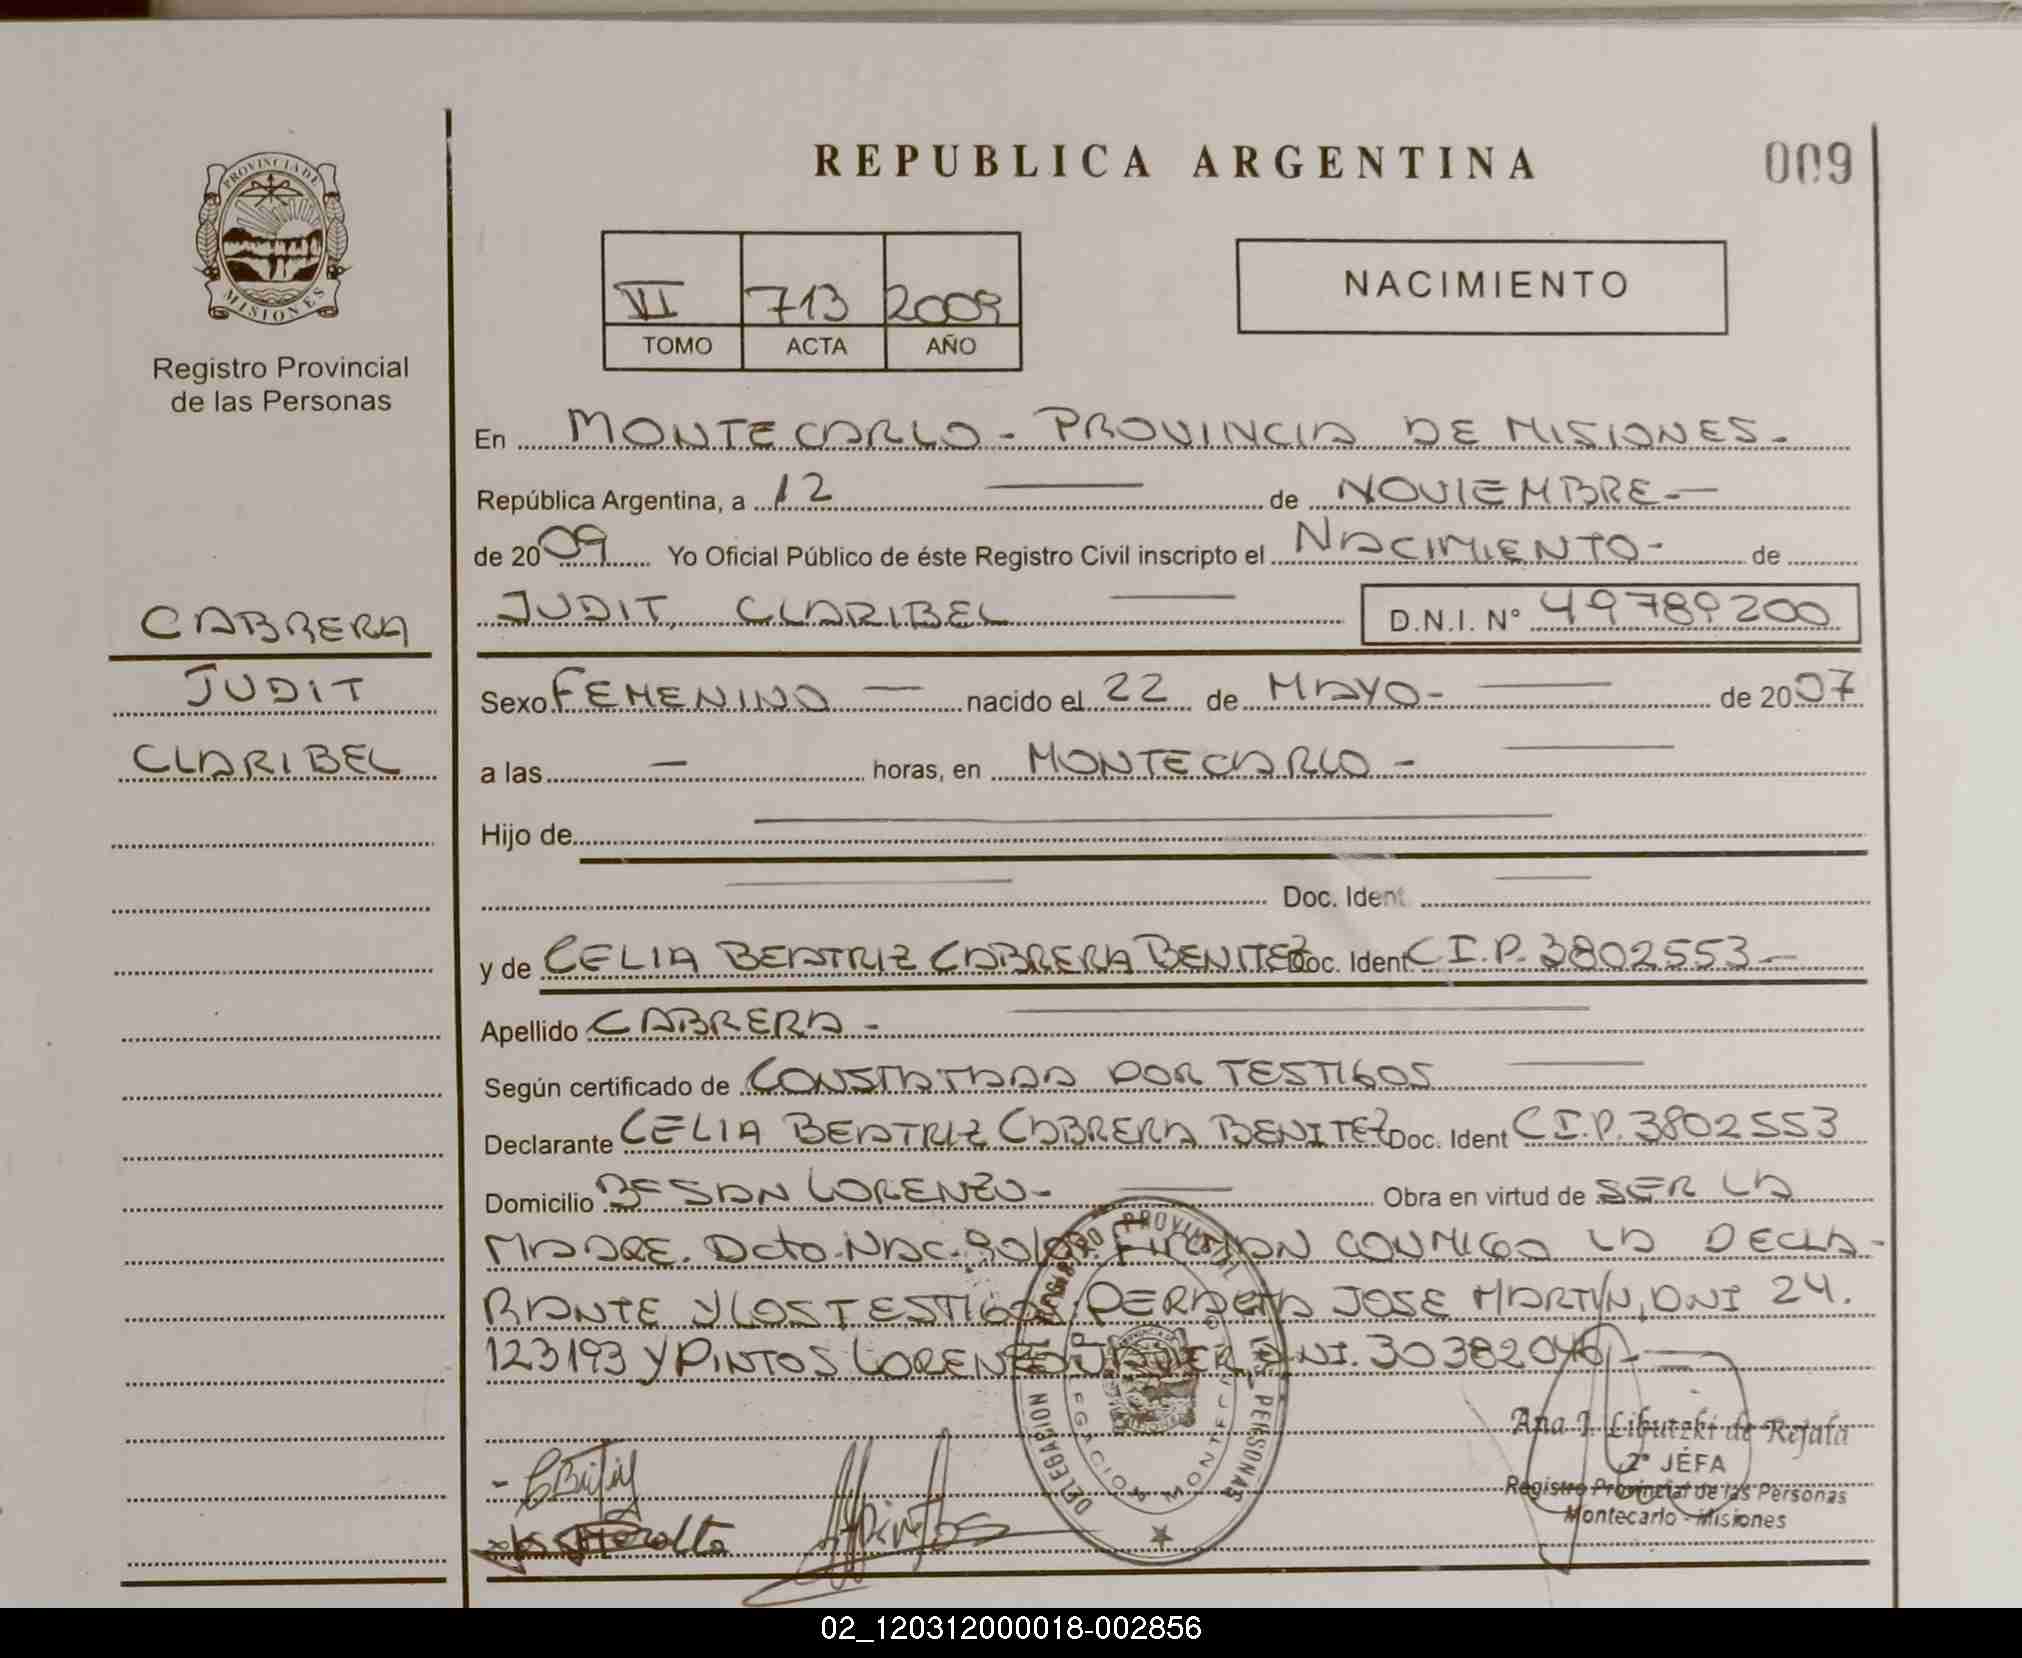 REPUBLICA ARGENTINA
009
PROVINCIA DE
MISIONES
Registro Provincial
de las Personas
VI 713 2009
TOMO ACTA AÑO
NACIMIENTO
En MONTECARLO - PROVINCIA DE MISIONES.
República Argentina, a 12 de NOVIEMBRE.
de 2009 Yo Oficial Público de éste Registro Civil inscripto el NACIMIENTO- de
JUDIT, CLARIBEL D.N.I. Nº 49789200
CABRERA
JUDIT
CLARIBEL
Sexo FEMENINO nacido el 22 de MAYO- de 2007
a las - horas, en MONTECARLO -
Hijo de
Doc. Ident
y de CELIA BEATRIZ CABRERA BENITEZ Doc. Ident C.I.P. 3802553
Apellido CABRERA -
Según certificado de CONSTATADA POR TESTIGOS
Declarante CELIA BEATRIZ CABRERA BENITEZ Doc. Ident C.I.P. 3802553
Domicilio Bº SAN LORENZO- Obra en virtud de SER LA
MADRE. Dcto. NAC. 90/09. FIRMAN CONMIGO LA DECLA-
RANTE Y LOS TESTIGOS: PERALTA JOSE MARTIN, DNI 24.
123193 Y PINTOS LORENZO JAVIER DNI. 30382046.-
DELEGACION REGISTRO PROVINCIAL DE LAS PERSONAS
DELEGACION MONTECARLO
Peralta
Pintos
Ana J. Libutzki de Rejala
2º JEFA
Registro Provincial de las Personas
Montecarlo - Misiones
02_120312000018-002856